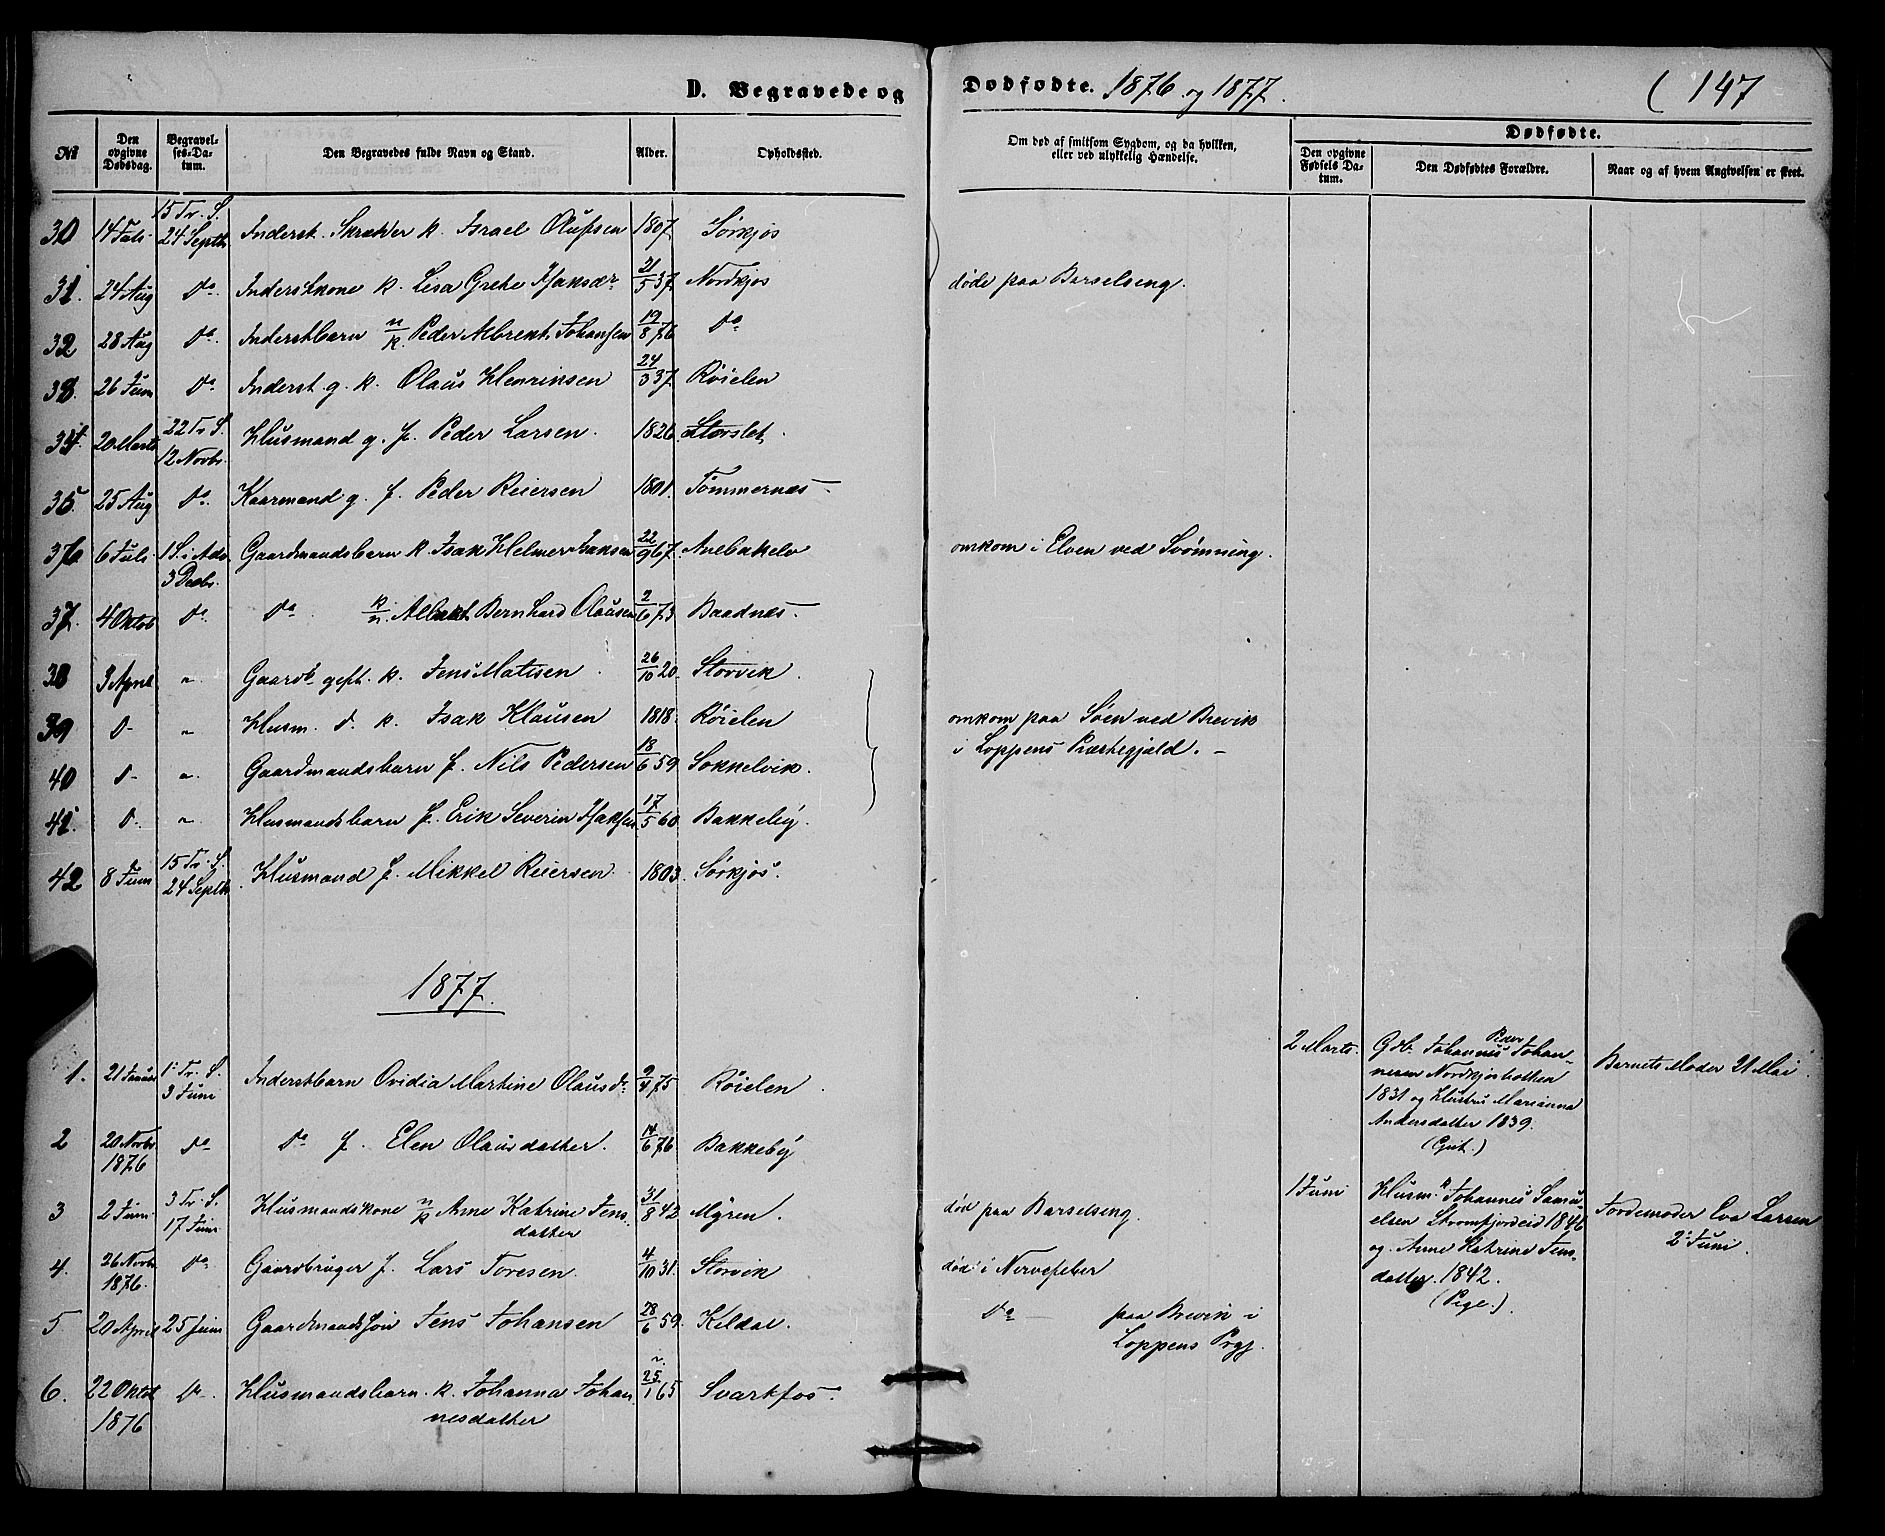 D. Begravede og Dødfødte. 1876 og 1877. ( 147
No
Den opgivne Dødsdag.
Begravelses-Datum.
Den Begravedes fulde Navn og Stand.
Alder.
Opholdssted.
Om død af smitsom Sygdom, og da hvilken, eller ved ulykkelig Hændelse.
Dødfødte.
Den opgivne Fødsels Datum.
Den Dødfødtes Forældre.
Naar og af hvem Angivelsen er skeet.
30 14 Juli 15 Tr. S. 24 Septbr Inderst. Skræder k. Israel Olufsen 1807. Sørkjos
31. 24 Aug do. Inderstkone k. Lisa Grethe Isaksdr 21/5 37. Nordkjos døde paa Barselseng.
32 28 Aug do. Inderstbarn n/k. Peder Albrekt Johansen 19/8 76 do
33. 26 Juni do Inderst g. k. Olaus Henriksen 24/3 37. Röielen
34. 20 Marts 22 Tr S. 12 Novbr. Husmand g. f. Peder Larsen. 1826 Storslet.
35. 25 Aug do. Kaarmand g. f. Peder Reiersen 1801. Tömmernæs.
36 6 Juli 1 S. i Adv. 3 Decbr. Gaardmandsbarn k. Isak Helmer Isaksen 22/9 67. Anebakelv omkom i Elven ved Svömning.
37. 4 Oktob do. do k/n. Albert Bernhard Olausen 2/6 73 Baadnæs.
38 3 April " Gaardb gift. k. Jens Matisen. 26/10 20. Storvik.
39 d- " Husm. d. k. Isak Klausen 1818. Röielen omkom paa Söen ved Brevik
i Loppens Præstegjæld.
40 d- " Gaardmandsbarn f. Nils Pedersen 18/6 59. Sokkelvik.
41. d. " Husmandsbarn f. Erik Severin Isaksen 17/5 60. Bakkeby.
42 8 Juni 15 Tr. S. 24 Septbr. Husmand f. Mikkel Reiersen. 1803. Sörkjos.
1877.
1. 21 Januar 1. Tr. S. 3 Juni Inderstbarn Ovidia Martine Olausdr. 9/4 75 Röielen.
2 Marts. Gdb. Johannes Peder Johan-
nesen Nordkjosbotten
1831 og Hustru Marianna
Andersdatter 1839.
(Gut.)
Barnets Moder 21 Mai.
2 20 Novbr 1876 do do f. Elen Olausdatter. 14/6 76. Bakkeby
3 2 Juni 3 Tr. S. 17 Juni Husmandskone n/k Anne Katrine Jens-
datter 31/8 42 Myren. död paa Barselseng.
1 Juni Husm. k Johannes Samu-
elsen Strömfjordeid 1846
og Anne Katrine Jens-
datter. 1842.
(Pige.)
Jordemoder Eva Larsen
2 Juni.
4. 26 Novbr. 1876. do Gaardbruger f. Lars Toresen. 4/10 31. Storvik död i Nervefeber
5 20 April 25 Juni Gaardmandssön Jens Johansen 28/6 59. Kildal. do — paa Brevik i
Loppens Prgj.
6. 22 Oktob 1876 do. Husmandsbarn. k. Johanna Johan-
nesdatter 25/1 65 Svartfos.